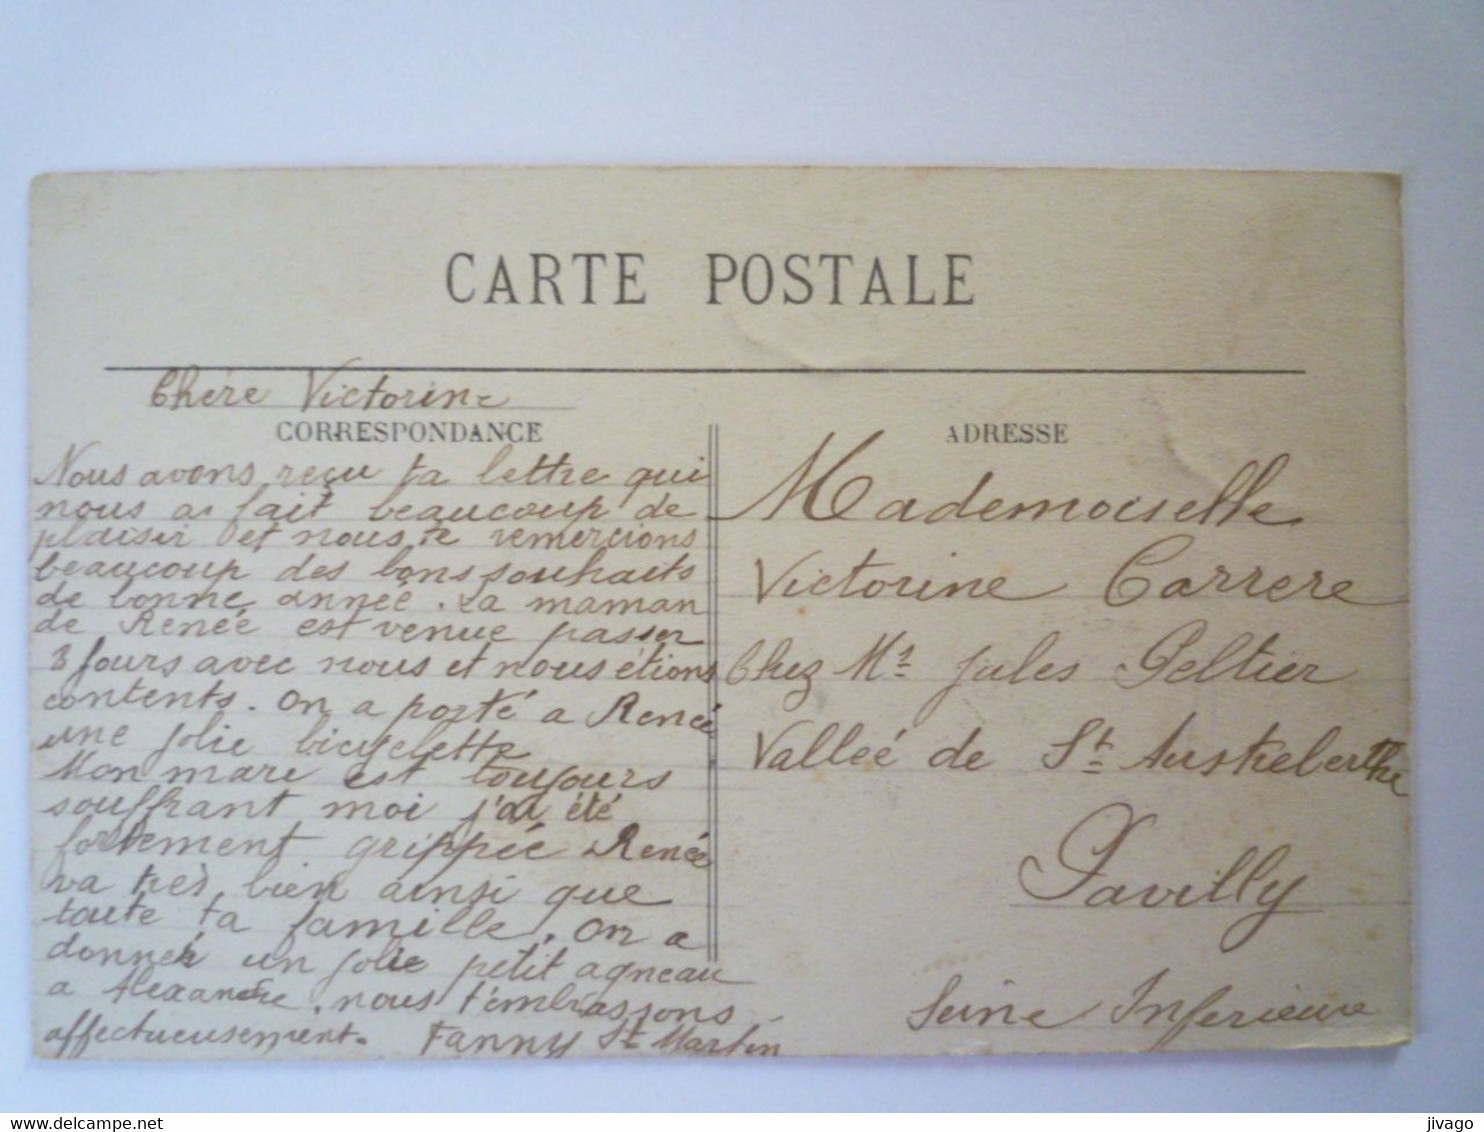 CARTE POSTALE
Chére Victorine
CORRESPONDANCE
Nous avons reçu ta lettre qui
nous a fait beaucoup de
plaisir et nous te remercions
beaucoup des bons souhaits
de bonne année. La maman
de Renée est venue passer
8 jours avec nous et nous étions
contents. on a porté a Renée
une jolie bicyclette
Mon mari est toujours
souffrant moi j'ai été
fortement grippée Renée
va tres bien ainsi que
toute ta famille. on a
donner un jolie petit agneau
a Alexandre. nous t'embrassons
affectueusement. Fanny St Martin
ADRESSE
Mademoiselle
Victorine Carrere
Chez Mr Jules Peltier
Valleé de St Austreberthe
Pavilly
Seine Inferieure
jivago